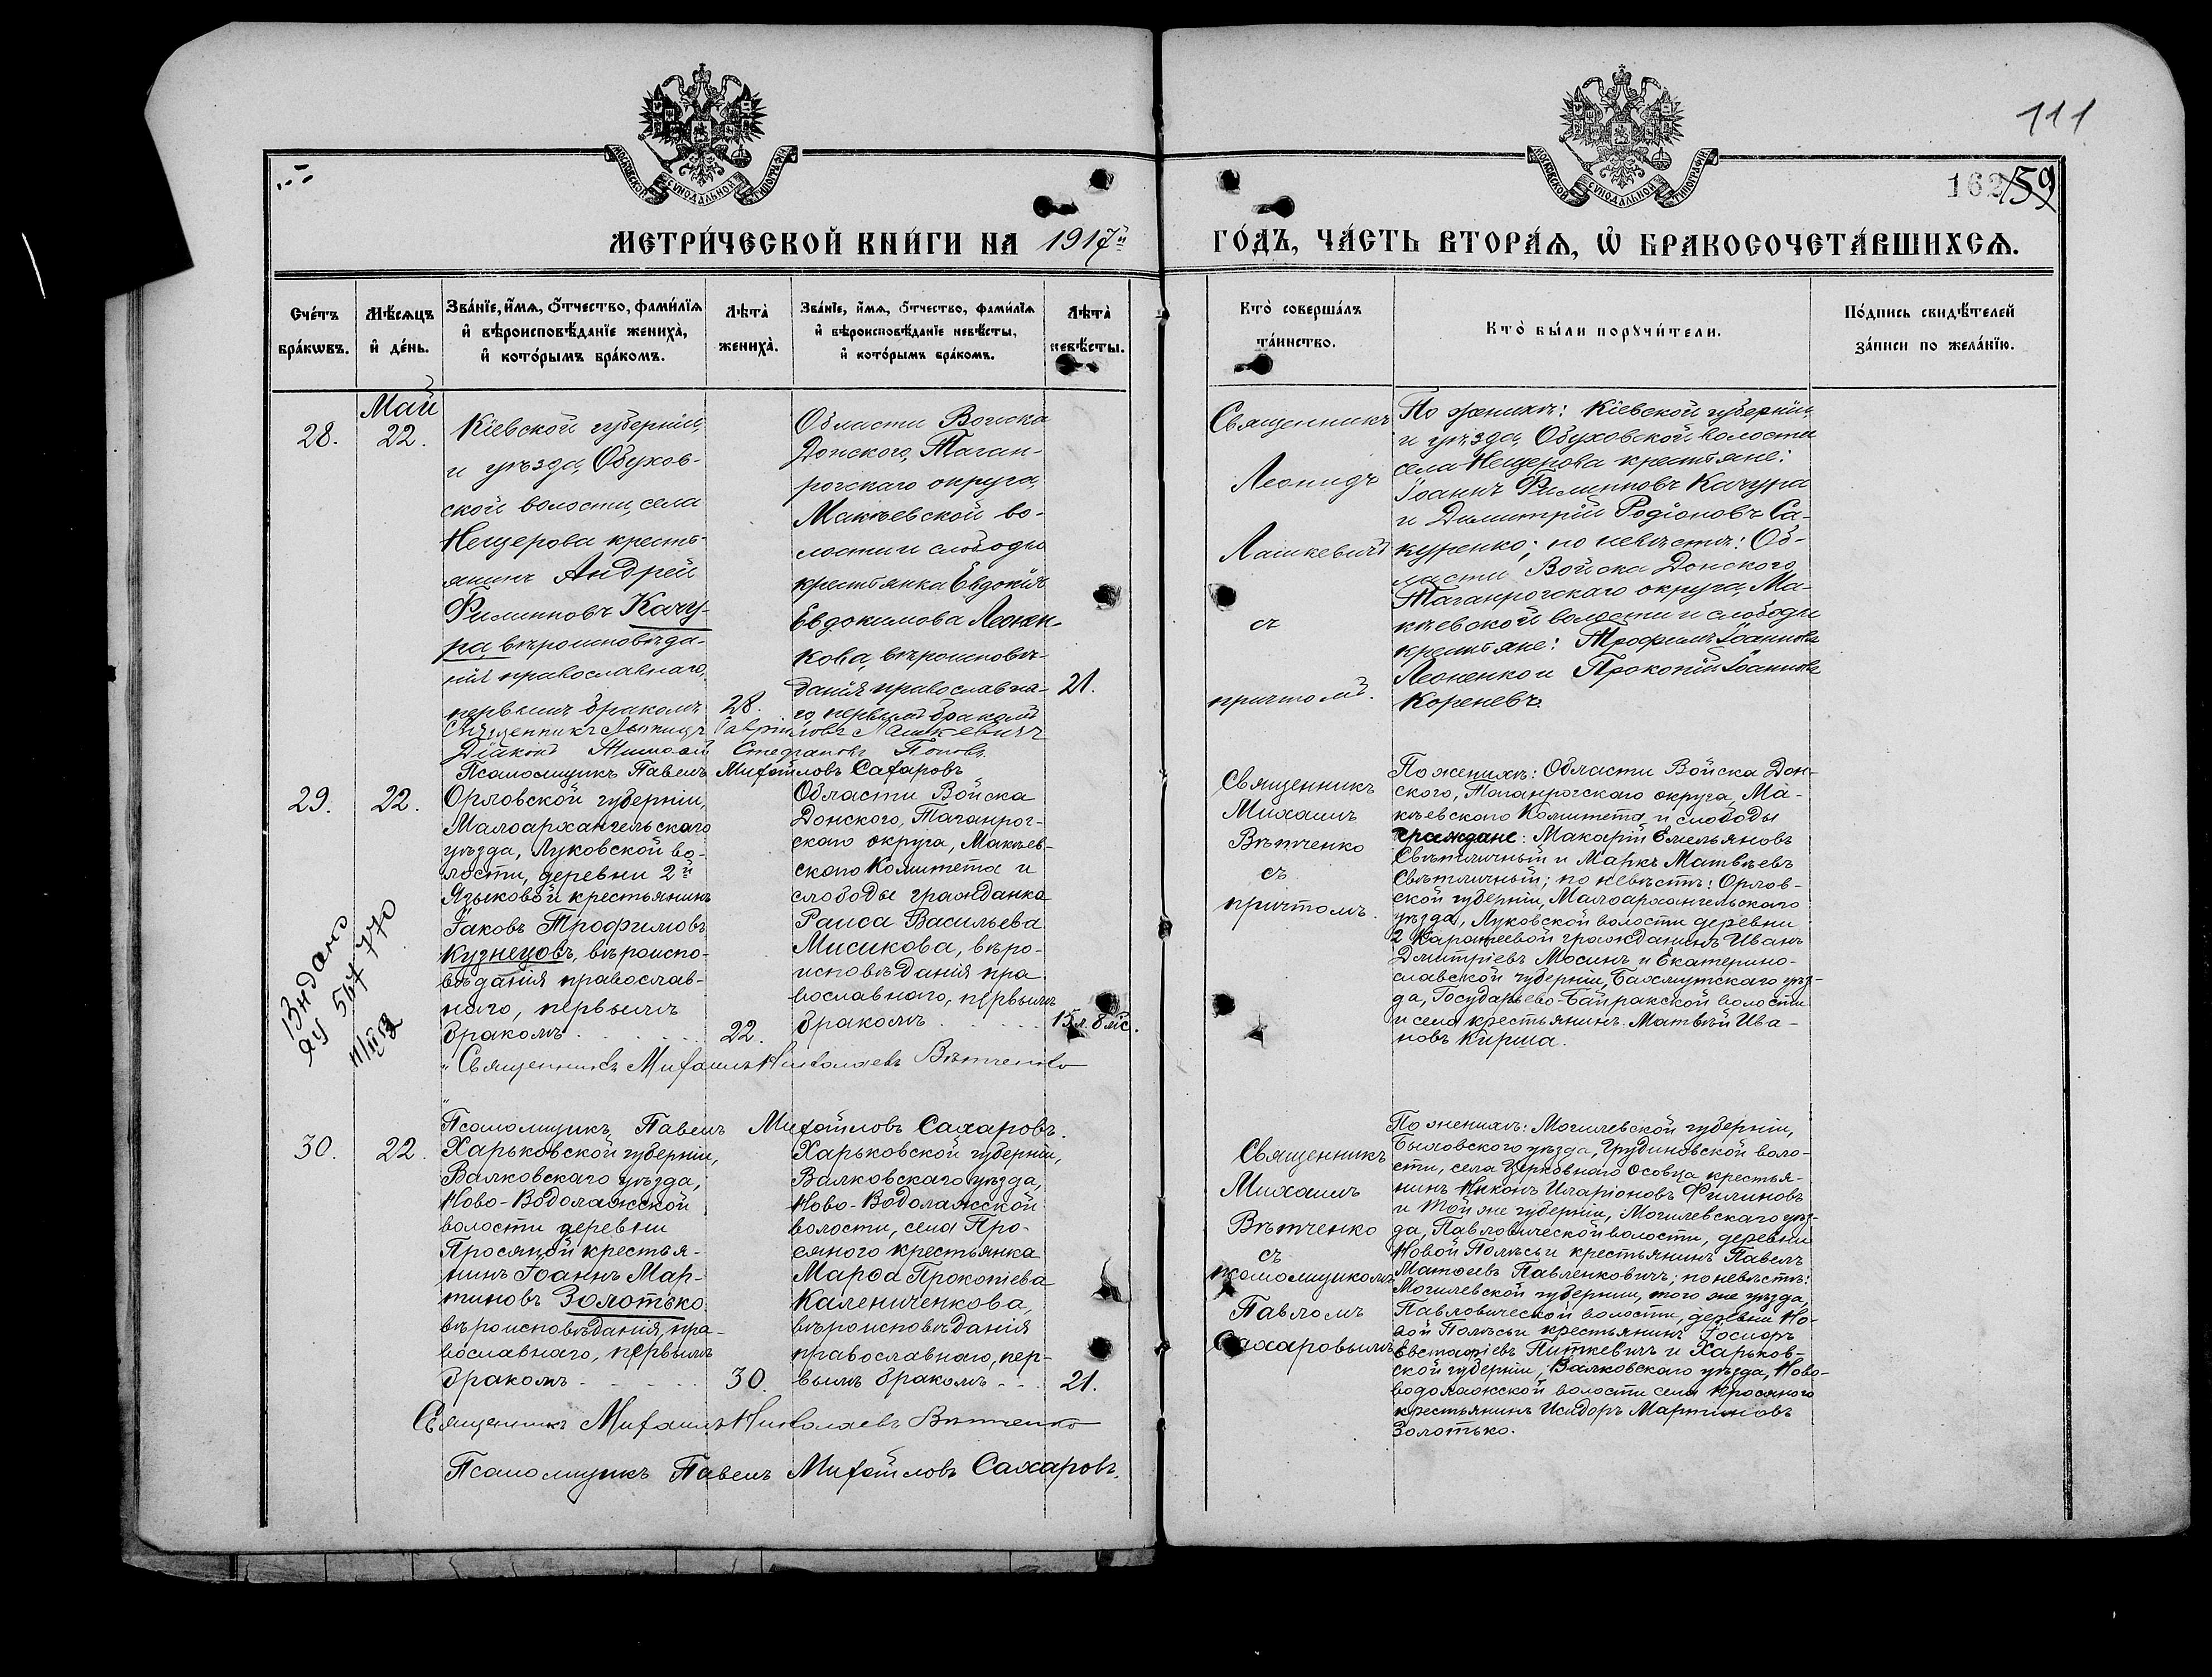 111
162
159
МОСКОВСКОЙ СУНОДАЛЬНОЙ ТИПОГРАФІИ
МОСКОВСКОЙ СУНОДАЛЬНОЙ ТИПОГРАФІИ
МЕТРИ́ЧЕСКОЙ КНИ́ГИ НА 1917й ГО́ДЪ, ЧА́СТЬ ВТОРА́Ѧ, Ѽ БРАКОСОЧЕТА́ВШИХСѦ.
Сче́тъ
бра́кѡвъ.
Мѣ́сѧцъ
и҆ де́нь.
Зва́нїе, и҆́мѧ, ѻ҆́тчество, фами́лїѧ
и҆ вѣроисповѣ́данїе жениха̀,
и҆ кото́рымъ бра́комъ.
Лѣта̀
жениха̀.
Зва́нїе, и҆́мѧ, ѻ҆́тчество, фами́лїѧ
и҆ вѣроисповѣ́данїе невѣ́сты,
и҆ кото́рымъ бра́комъ.
Лѣта̀
невѣ́сты.
Кто̀ соверша́лъ
та́инство.
Кто̀ бы́ли порꙋчи́тели.
По́дпись свидѣ́телей
за́писи по жела́нїю.
28.
Май
22.
Кіевской губерніи,
и уѣзда, Обухов-
ской волости, села
Нещерова кресть-
янинъ Андрей
Филипповъ Качу-
ра, вѣроисповѣда-
нія православнаго,
первымъ бракомъ
28.
Области Войска
Донского, Таган-
рогскаго округа,
Макѣевской во-
лости и слободы
крестьянка Евдокія
Евдокимова Леонен-
кова, вѣроисповѣ-
данія православна-
го, первымъ бракомъ
21.
Священникъ
Леонидъ
Лашкевичъ
съ
причтомъ.
По женихѣ: Кіевской губерніи
и уѣзда, Обуховской волости
села Нещерова крестьяне:
Іоаннъ Филипповъ Качура
и Димитрій Родіоновъ Са-
куренко; по невѣстѣ: Об-
ласти Войска Донского
Таганрогскаго округа, Ма-
кѣевской волости и слободы
крестьяне: Трофимъ Іоанновъ
Леоненко и Прокопій Іоанновъ
Кореневъ.
Священникъ Леонидъ Гавріиловъ Лашкевичъ
Діаконъ Тимофей Стефановъ Поповъ
Псаломщикъ Павелъ Михайловъ Сахаровъ
29.
22.
Орловской губерніи,
Малоархангельскаго
уѣзда, Луковской во-
лости, деревни 2й
Языковой крестьянинъ
Іаковъ Трофимовъ
Кузнецовъ, вѣроиспо-
вѣданія православ-
наго, первымъ
бракомъ
22.
Области Войска
Донского, Таганрог-
скаго округа, Макѣев-
скаго Комитета и
слободы гражданка
Раиса Васильева
Мисикова, вѣро-
исповѣданія пра-
вославнаго, первымъ
бракомъ
15 л. 8 мѣс.
Священникъ
Михаилъ
Вѣтченко
съ
причтомъ.
По женихѣ: Области Войска Дон-
ского, Таганрогскаго округа, Ма-
кѣевскаго Комитета и слободы
граждане: Макарій Емельяновъ
Свѣтличный и Маркъ Матвѣевъ
Свѣтличный; по невѣстѣ: Орлов-
ской губерніи, Малоархангельскаго
уѣзда, Луковской волости деревни
2 Каратеевой гражданинъ Иванъ
Дмитріевъ Мосинъ и Екатерино-
славской губерніи, Бахмутскаго уѣз-
да, Государево-Байракской волости
и села крестьянинъ Матвѣй Ива-
новъ Кирша.
Священникъ Михаилъ Николаевъ Вѣтченко
Псаломщикъ Павелъ Михайловъ Сахаровъ.
30.
22.
Харьковской губерніи,
Валковскаго уѣзда,
Ново-Водолажской
волости деревни
Просяной крестья-
нинъ Іоаннъ Мар-
тиновъ Золотько,
вѣроисповѣданія, пра-
вославнаго, первымъ
бракомъ
30.
Харьковской губерніи,
Валковскаго уѣзда,
Ново-Водолажской
волости, села Про-
сяного крестьянка
Марѳа Прокопіева
Калениченкова,
вѣроисповѣданія
православнаго, пер-
вымъ бракомъ
21.
Священникъ
Михаилъ
Вѣтченко
съ
псаломщикомъ
Павломъ
Сахаровымъ
По женихѣ: Могилевской губерніи,
Быховскаго уѣзда, Грудиновской воло-
сти, села Церковнаго Осовца крестья-
нинъ Никонъ Иларіоновъ Филиновъ
и той же губерніи, Могилевскаго уѣз-
да, Павловической волости, деревни
Новой Полѣсьи крестьянинъ Павелъ
Матѳеевъ Павленковичъ; по невѣстѣ:
Могилевской губерніи, того же уѣзда
Павловической волости, деревни Но-
вой Полѣсьи крестьянинъ Іосифъ
Евстафіевъ Питкевичъ и Харьков-
ской губерніи, Валковскаго уѣзда, Ново-
водолажской волости села Просяного
крестьянинъ Исидоръ Мартиновъ
Золотько.
Священникъ Михаилъ Николаевъ Вѣтченко
Псаломщикъ Павелъ Михайловъ Сахаровъ.